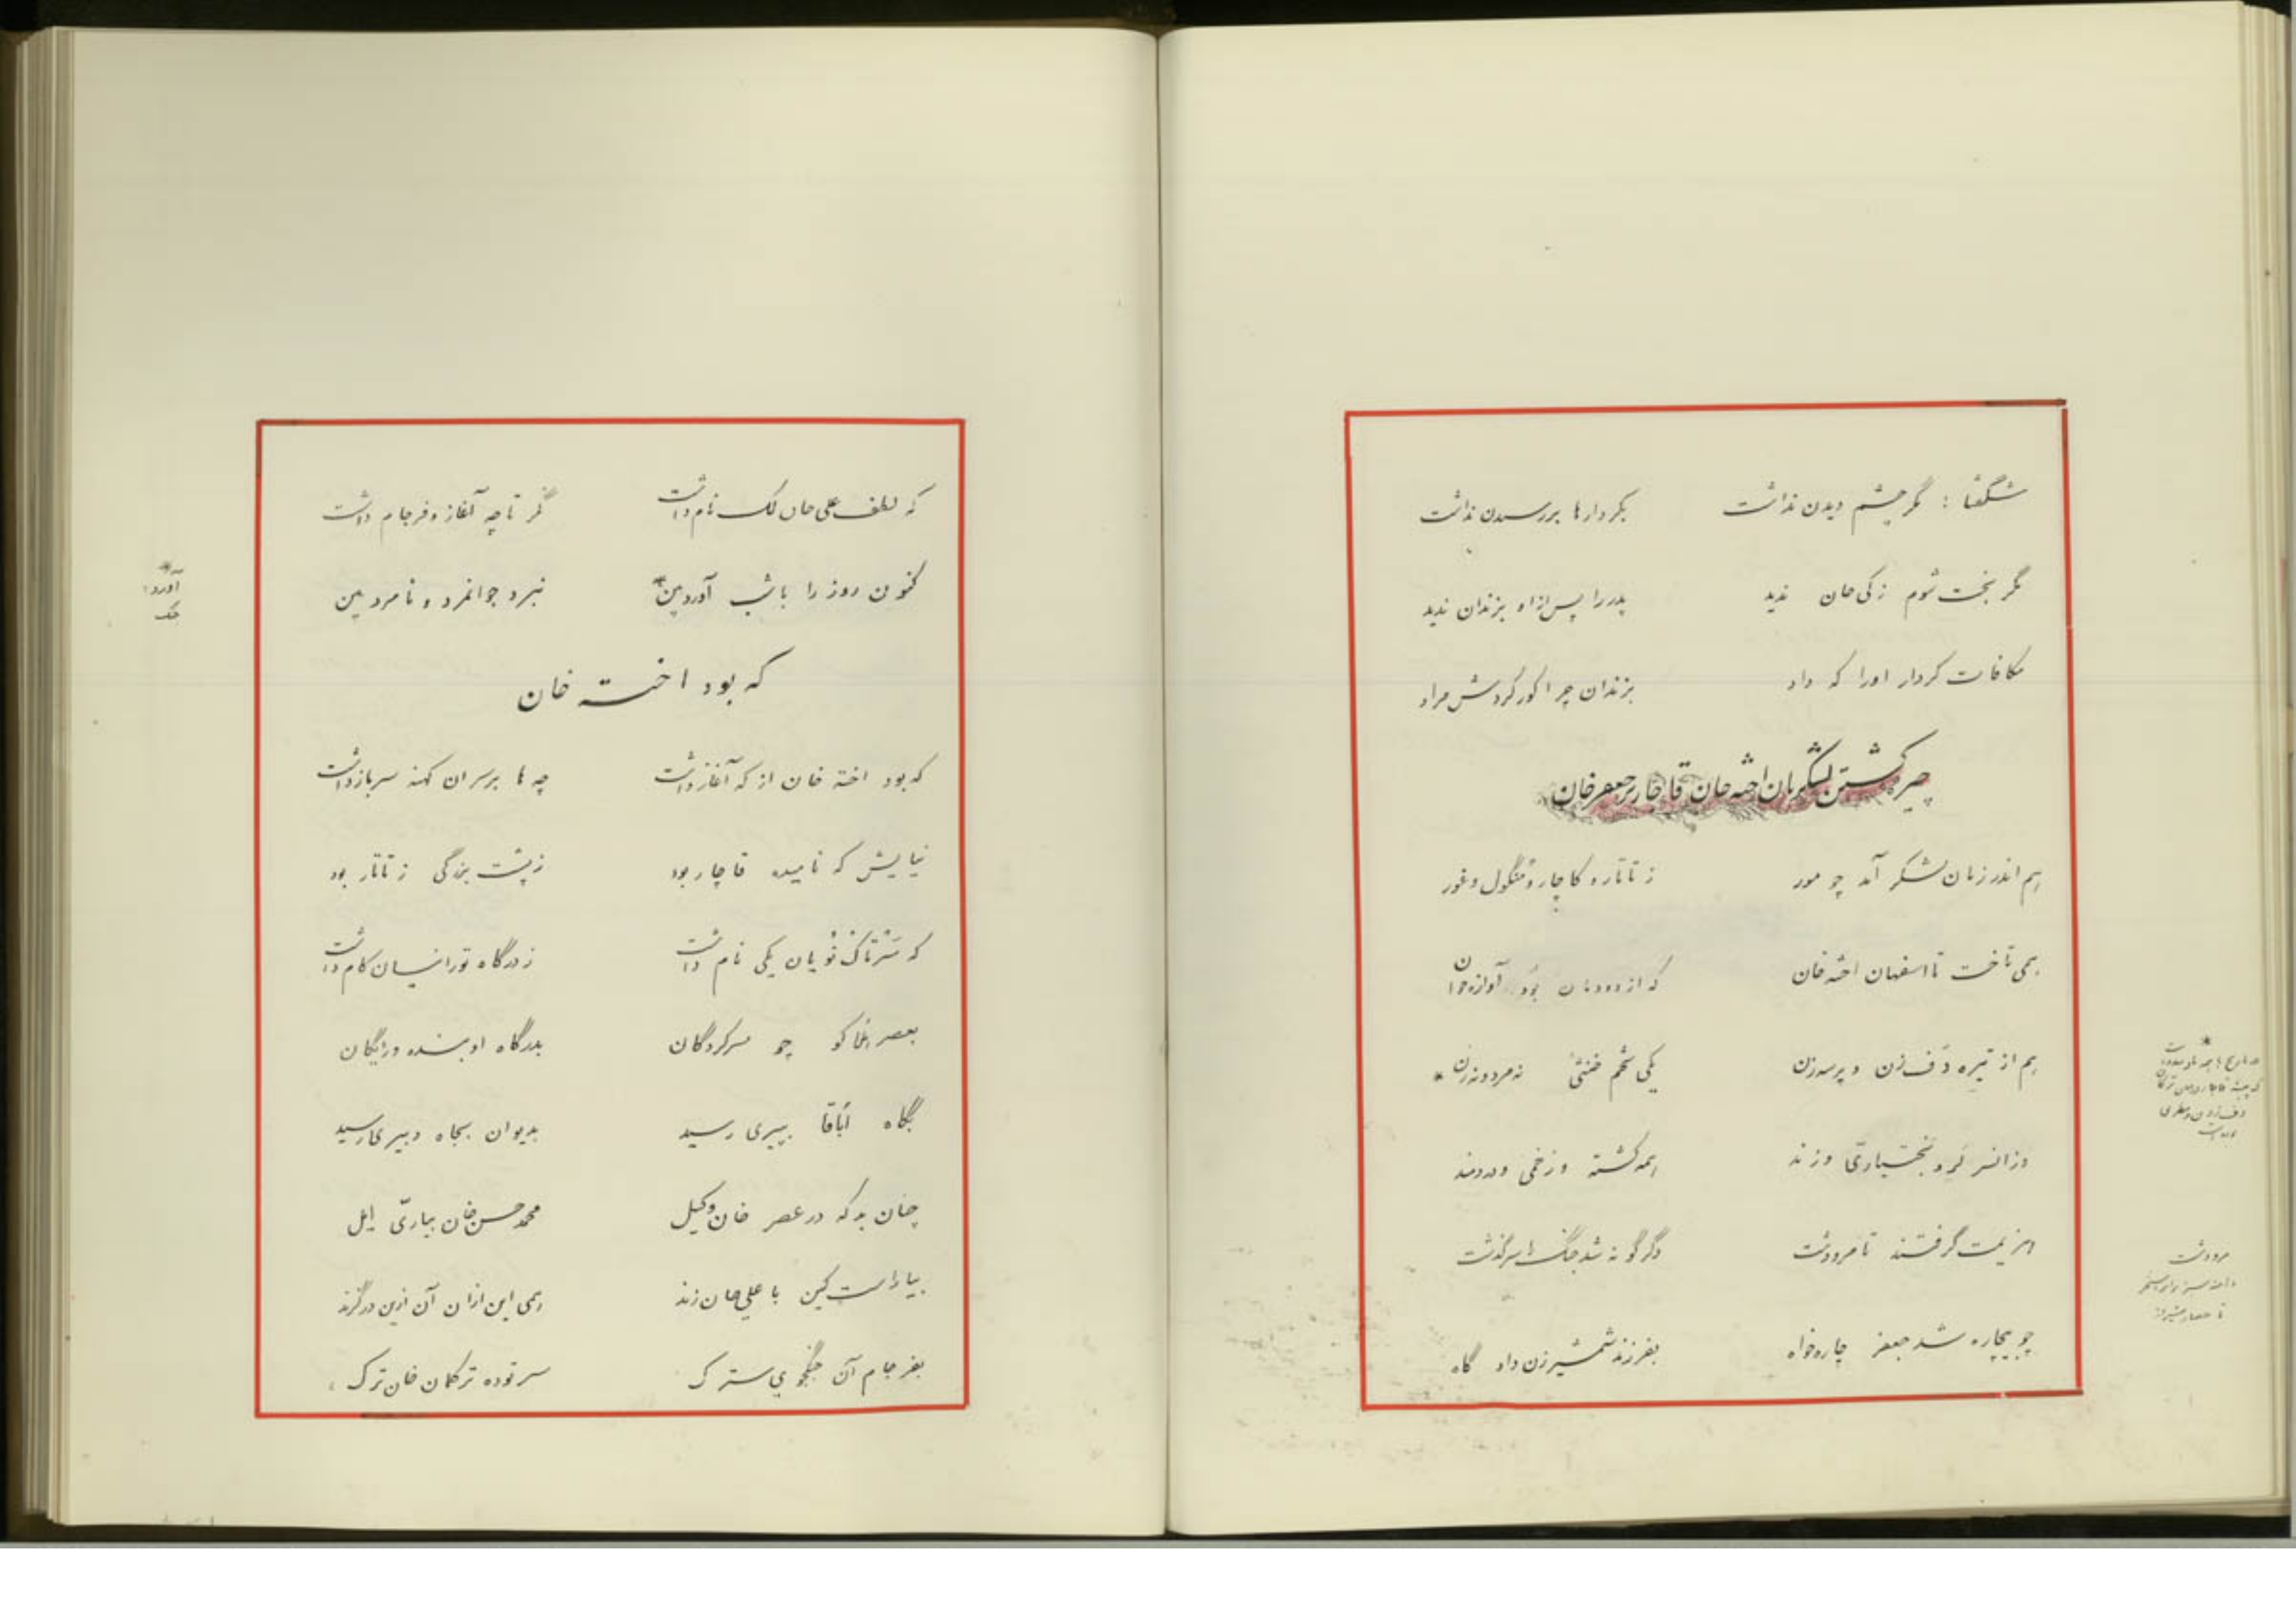 شگفتا : مگر چشم دیدن نداشت    بکردارها بررسیدن نداشت
مگر بخت شوم زکی خان ندید    پدر را پس از او بزندان ندید
مکافات کردار او را که داد    بزندان چرا کور کردش مراد
چیره گشتن لشگریان اخته خان قاجار بر جعفر خان
هم اندر زمان لشکر آمد چو مور    ز تاتار و کاچار و منگول و غور
همی تاخت تا اسفهان اخته خان    که از دودمان بود آوازه خوان
هم از تیره دف زن و پرسه زن    یکی شخم خنثی نه مرد و نه زن *
وز انسر لر و بختیاری و زند    همه کشته و زخمی و دردمند
هزیمت گرفتند تا مرودشت    دگرگونه شد جنگ را سرگذشت
چو بیچاره شد جعفر چاره خواه    بفرزند شمشیرزن داد گاه
*
دف زن و
مرودشت
تا حصار شیراز
که لطف علی خان لک نام داشت    نگر تا چه آغاز و فرجام داشت
کنون روز را با شب آورد بین *    نبرد جوانمرد و نامرد بین
*
آورد :
جنگ
که بود اخته خان
که بود اخته خان از که آغاز داشت    چه ها بر سر ان کهنه سرباز داشت
نیایش که نامیده قاچار بود    ز پشت بزرگی ز تاتار بود
که سرتاک نویان یکی نام داشت    ز درگاه تورانیان کام داشت
بعصر هلاکو چو سرکردگان    بدرگاه او بنده و رایگان
بگاه اباقا بپیری رسید    بدیوان بجاه دبیری رسید
چنان بد که در عصر خان وکیل    محمد حسن خان بیاری ایل
بیاراست کین با علی خان زند    همی این ازان آن ازین در گزند
بفرجام آن جنگجوی سترک    سر توده ترکمان خان ترک